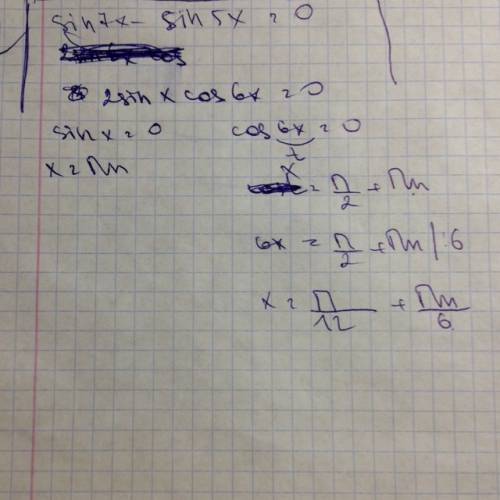 sin 7x - sin 5x = 0
2 sin x cos 6x = 0
sin x = 0 cos 6x = 0
x = Πn
x = Π/2 + Πn
6x = Π/2 + Πn | : 6
x = Π/12 + Πn/6